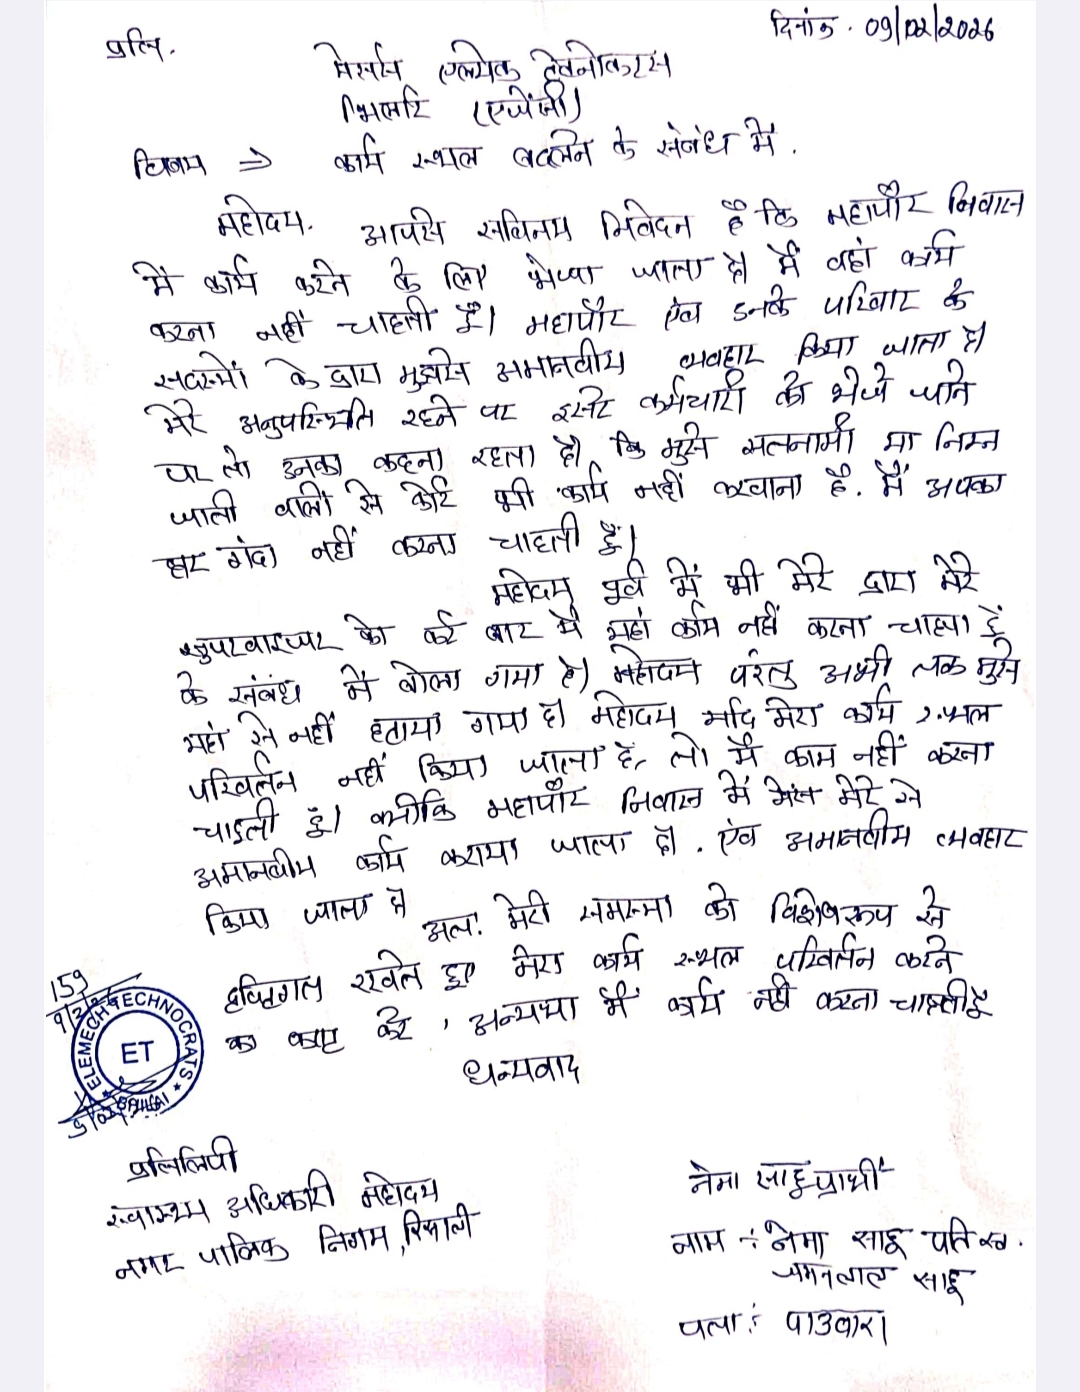 दिनांक. 09/02/2026
प्रति.
मेसर्स एल्मेक टेक्नोक्रेटस
भिलाई (एजेंसी)
विषय ⇒ कार्य स्थल बदलने के संबंध में.
महोदय. आपसे सविनय निवेदन है कि महापौर निवास
में कार्य करने के लिए भेजा जाता है। मैं वहां कार्य
करना नहीं चाहती हूँ। महापौर एंव उनके परिवार के
सदस्यों के द्वारा मुझसे अमानवीय व्यवहार किया जाता है।
मेरे अनुपस्थिति रहने पर दुसरे कर्मचारी को भेजे जाने
पर तो उनका कहना रहता है। कि मुझे सतनामी या निम्न
जाती वालों से कोई भी कार्य नहीं करवाना है. मैं अपका
घर गंदा नहीं करना चाहती हूँ।
महोदय पूर्व में भी मेरे द्वारा मेरे
सुपरवाइजर को कई बार मैं यहां काम नहीं करना चाहा हूं
के संबंध में बोला गया है। महोदय परंतु अभी तक मुझे
यहां से नहीं हटाया गया है। महोदय यदि मेरा कार्य स्थल
परिवर्तन नहीं किया जाता है, तो मैं काम नहीं करना
चाहती हूं। क्योंकि महापौर निवास में मेरे से
अमानवीय कार्य कराया जाता है. एंव अमानवीय व्यवहार
किया जाता है
अतः मेरी समस्या को विशेषरूप से
दृष्टिगत रखते हुए मेरा कार्य स्थल परिवर्तन करने
का कष्ट करे, अन्यथा मैं कार्य नहीं करना चाहती हूँ
धन्यवाद
159
9/2/26
ELEMECH TECHNOCRATS
ET
BHILAI
प्रतिलिपी
स्वास्थ्य अधिकारी महोदय
नगर पालिक निगम, रिसाली
नेमा साहू प्रार्थी
नाम :- नेमा साहू पति स्व.
जमनलाल साहू
पता :- पाउवारा